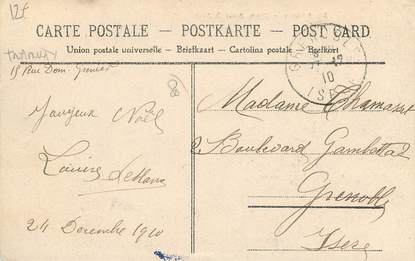 12f
CARTE POSTALE – POSTKARTE – POST CARD
Union postale universelle – Briefkaart – Cartolina postale – Brefkort
15 Rue Dom.
108
Joyeux Noël
24 Décembre 1910
10
Madame Chamasset
2 Boulevard Gambetta 2
Grenoble
Isere